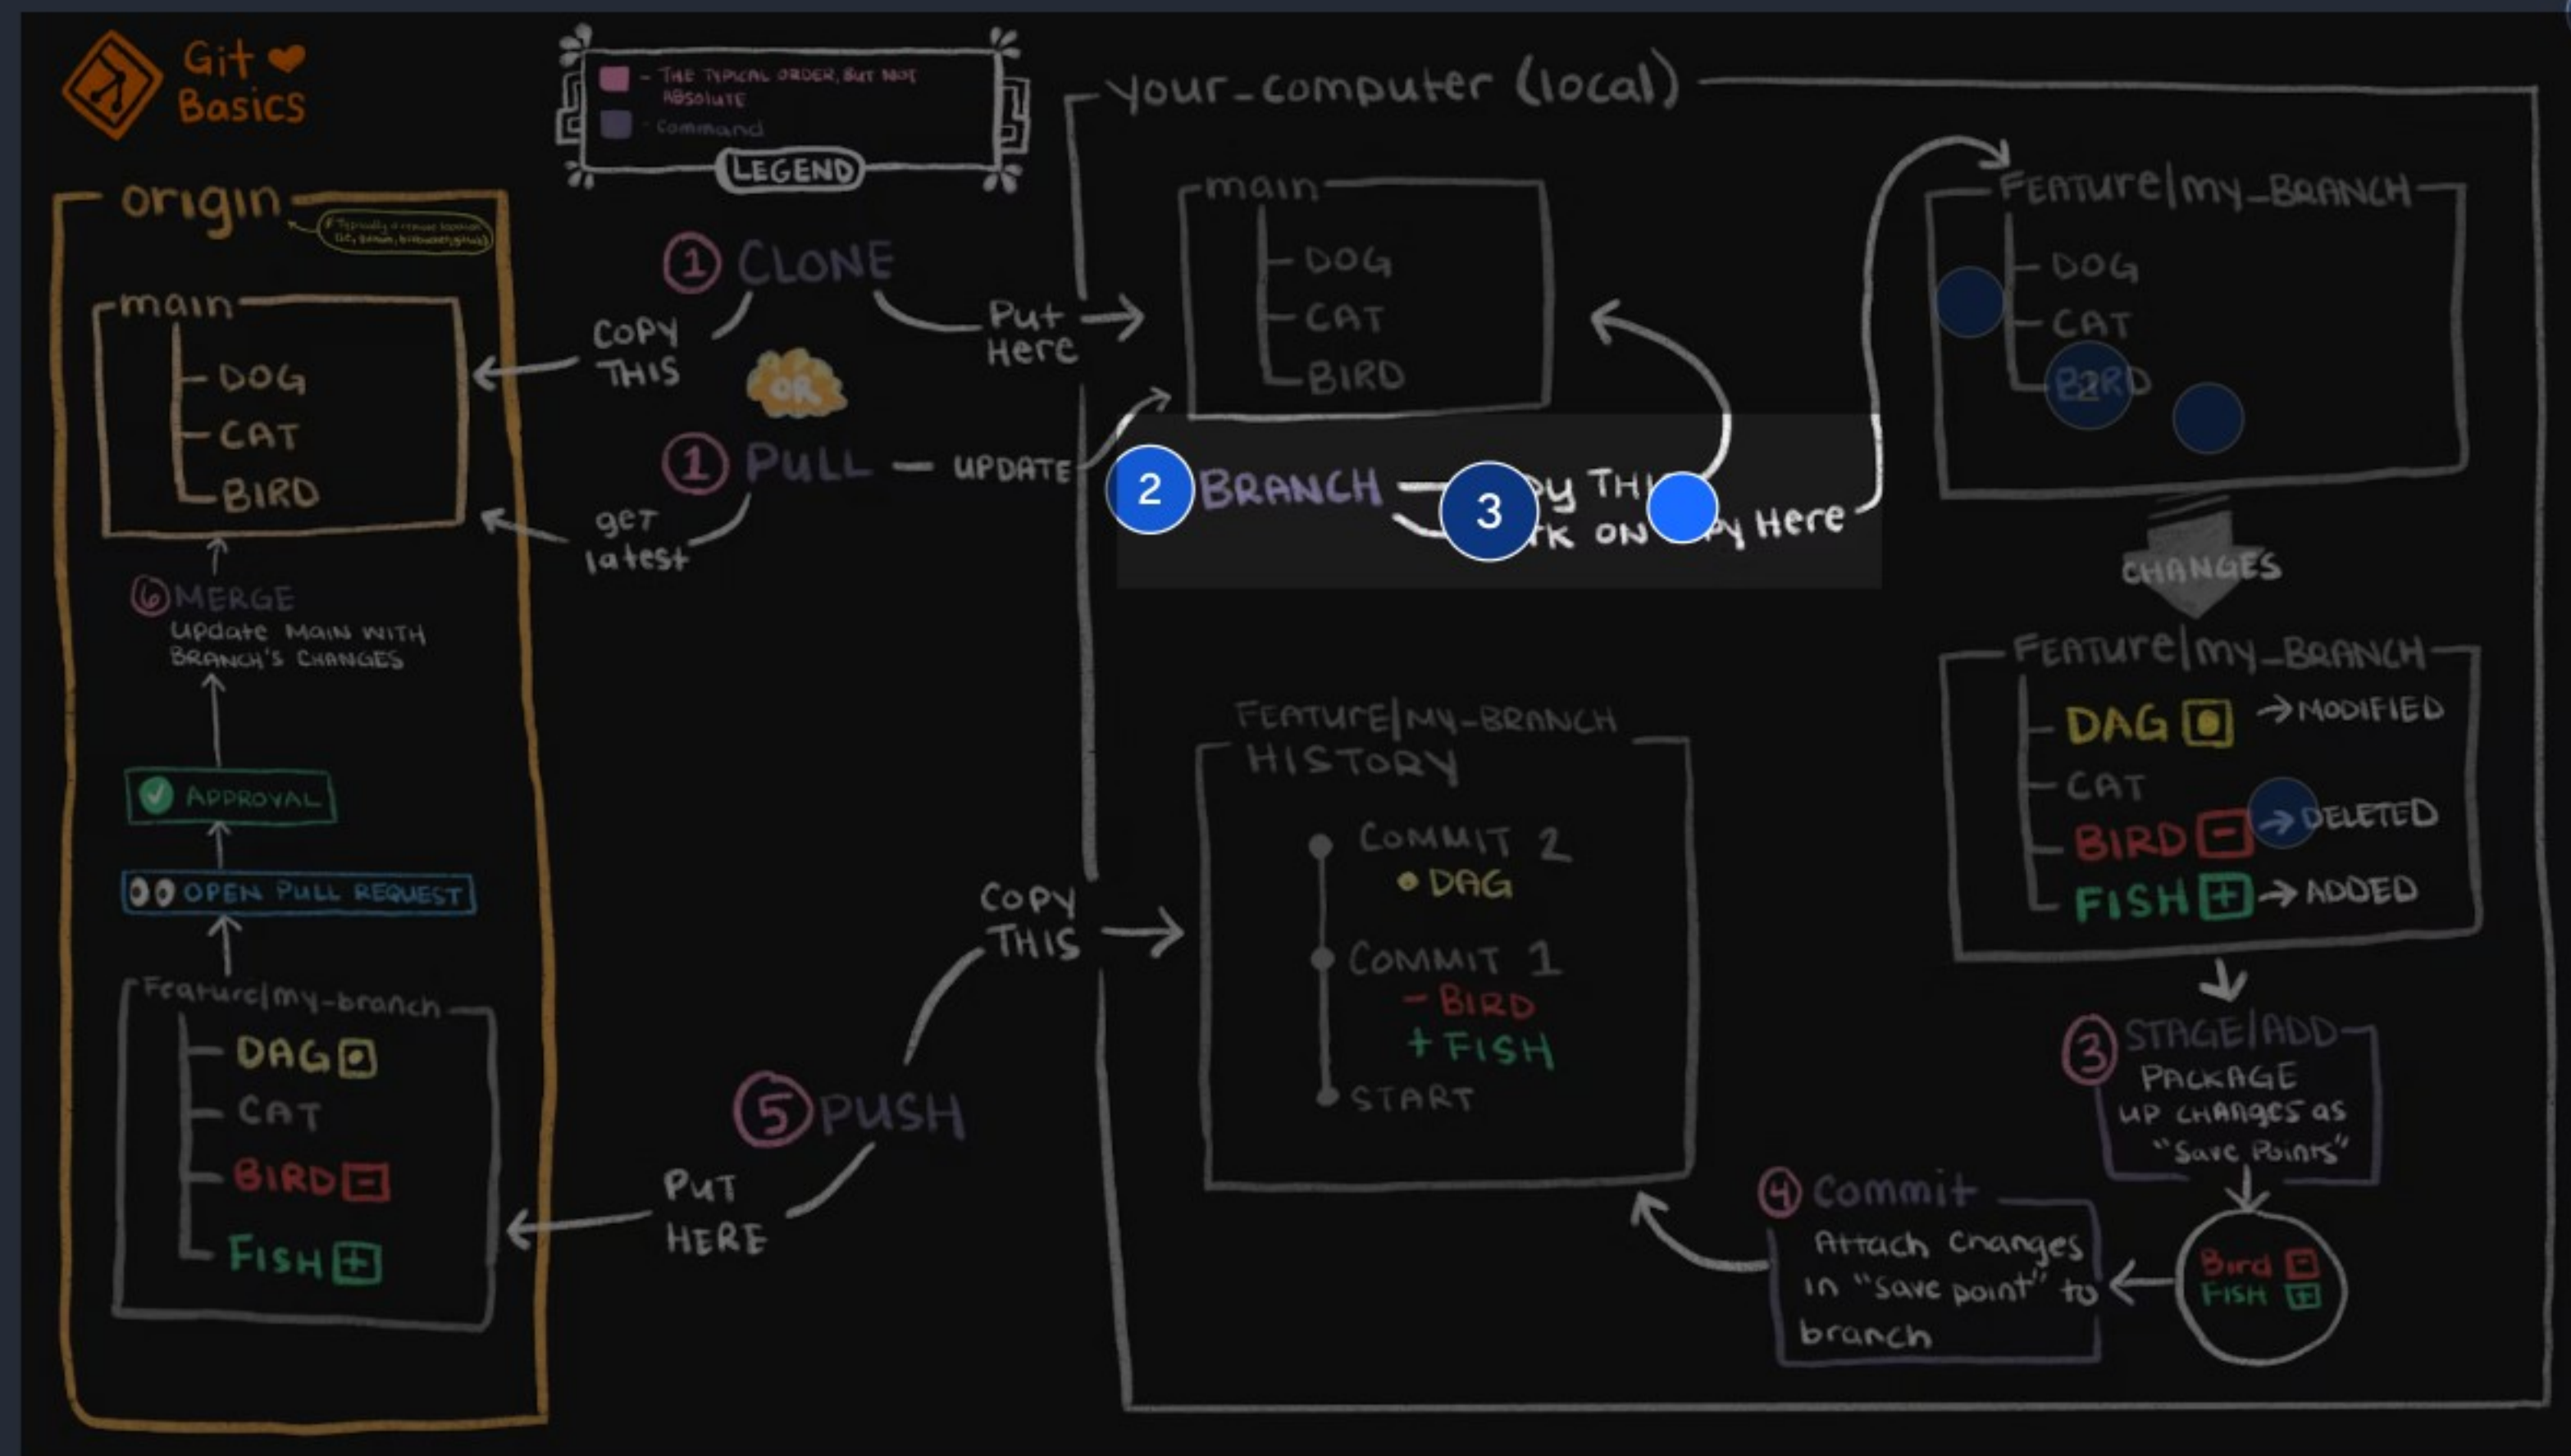 Git ❤
Basics
- THE TYPICAL ORDER, BUT NOT
ABSOLUTE
- Command
LEGEND
origin
main
DOG
CAT
BIRD
6 MERGE
update MAIN WITH
BRANCH'S CHANGES
APPROVAL
OPEN PULL REQUEST
Feature/my-branch
DAG
CAT
BIRD -
FISH +
1 CLONE
COPY
THIS
Put
Here
OR
1 PULL — UPDATE
get
latest
your_computer (local)
main
DOG
CAT
BIRD
2 BRANCH
3
ON
Here
FEATURE/my_BRANCH
DOG
CAT
BIRD
2
CHANGES
FEATURE/my_BRANCH
DAG → MODIFIED
CAT
BIRD - → DELETED
FISH + → ADDED
3 STAGE/ADD
PACKAGE
UP CHANGES as
"Save Points"
Bird -
FISH +
4 Commit
Attach Changes
in "save point" to
branch
FEATURE/MY-BRANCH
HISTORY
COMMIT 2
• DAG
COMMIT 1
- BIRD
+ FISH
START
COPY
THIS
5 PUSH
PUT
HERE